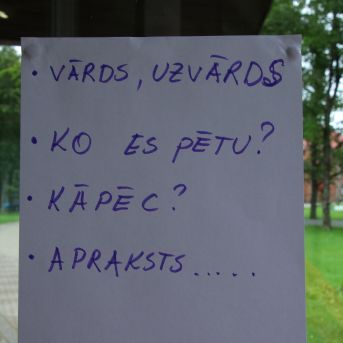 · VĀRDS, UZVĀRDS
· KO ES PĒTU?
· KĀPĒC?
· APRAKSTS.....